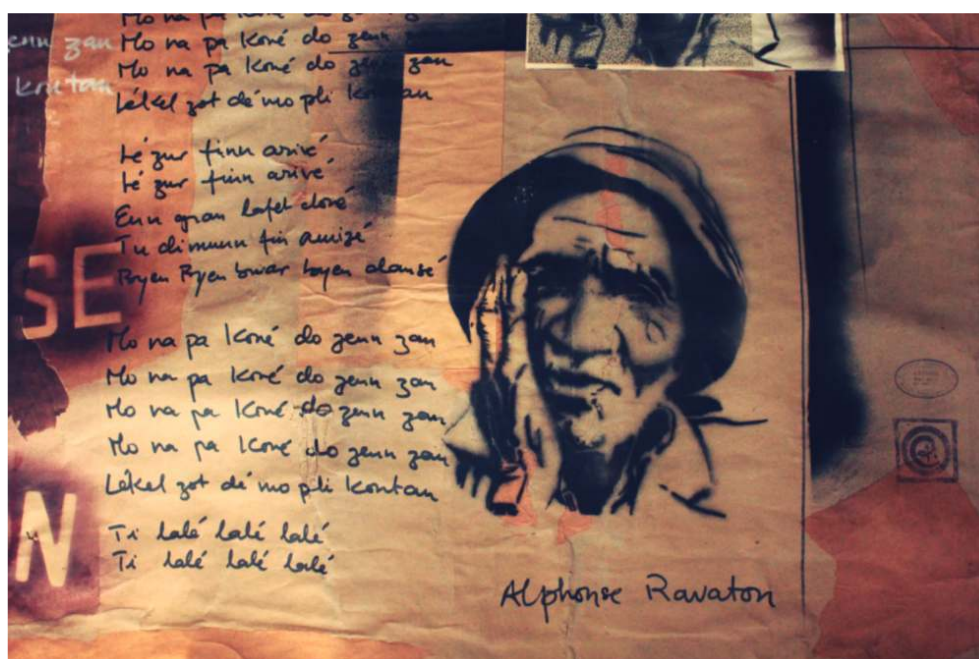 enn zan
kontan
Mo na pa koné do zenn
Mo na pa koné do zenn
Mo na pa koné do zenn zan
Lékel zot dé mo pli kontan
Lé zur finn arivé
Lé zur finn arivé
Enn gran lafet doné
Tu dimunn fin amizé
Byen Byen bwar byen dansé
SE
Mo na pa koné do zenn zan
Mo na pa koné do zenn zan
Mo na pa koné do zenn zan
Mo na pa koné do zenn zan
Lékel zot dé mo pli kontan
N
Ti lalé lalé lalé
Ti lalé lalé lalé
Alphonse Ravaton